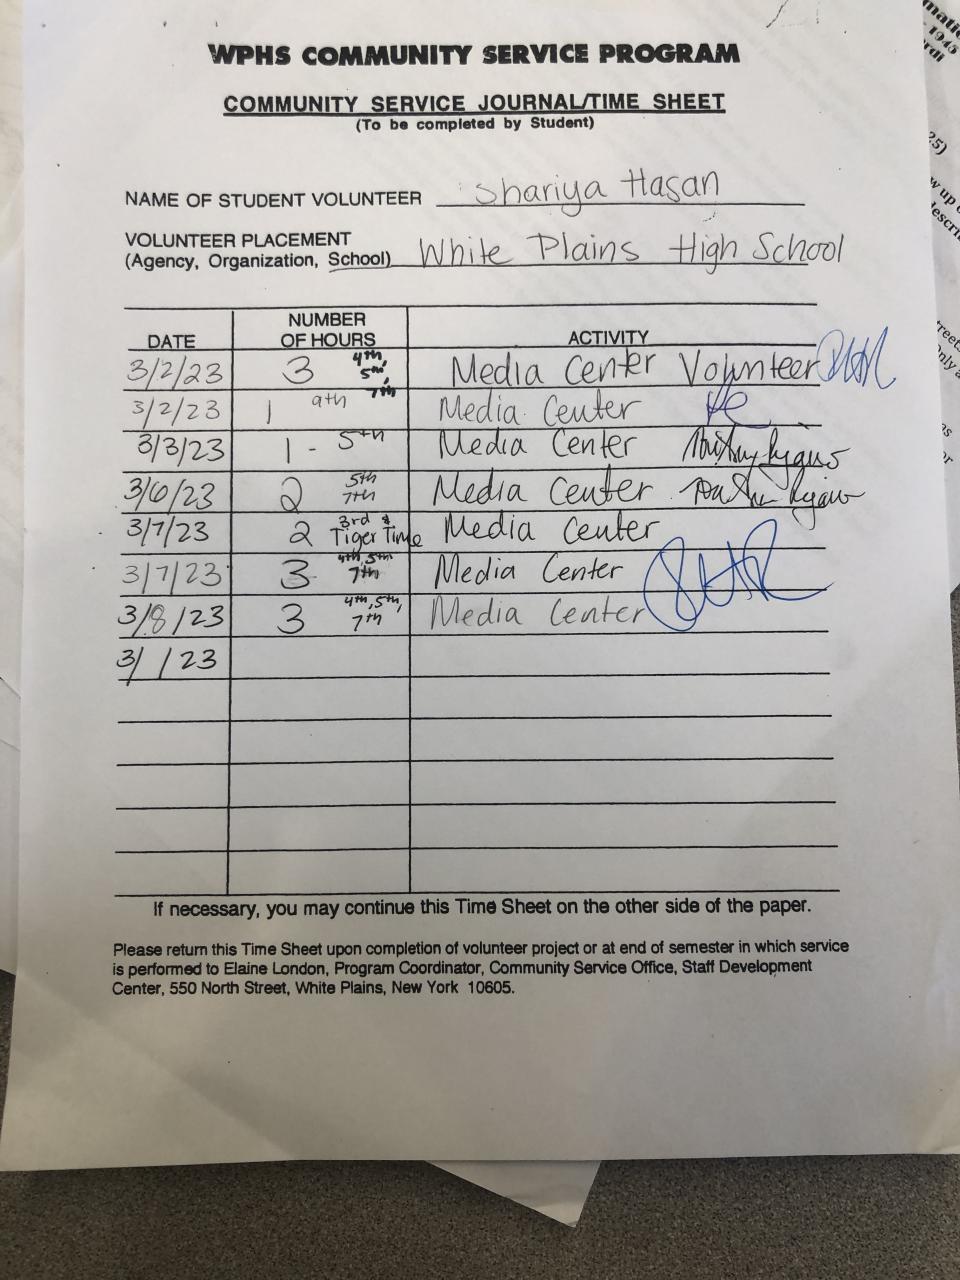 WPHS COMMUNITY SERVICE PROGRAM
COMMUNITY SERVICE JOURNAL/TIME SHEET
(To be completed by Student)
NAME OF STUDENT VOLUNTEER Shariya Hasan
VOLUNTEER PLACEMENT
(Agency, Organization, School) White Plains High School
DATE NUMBER OF HOURS ACTIVITY
3/2/23 3 4th, 5th, 7th Media Center Volunteer
3/2/23 1 9th Media Center
3/3/23 1 - 5th Media Center
3/6/23 2 5th 7th Media Center
3/7/23 2 3rd & Tiger Time Media Center
3/7/23 3 4th, 5th 7th Media Center
3/8/23 3 4th, 5th, 7th Media Center
3/ /23
If necessary, you may continue this Time Sheet on the other side of the paper.
Please return this Time Sheet upon completion of volunteer project or at end of semester in which service
is performed to Elaine London, Program Coordinator, Community Service Office, Staff Development
Center, 550 North Street, White Plains, New York 10605.